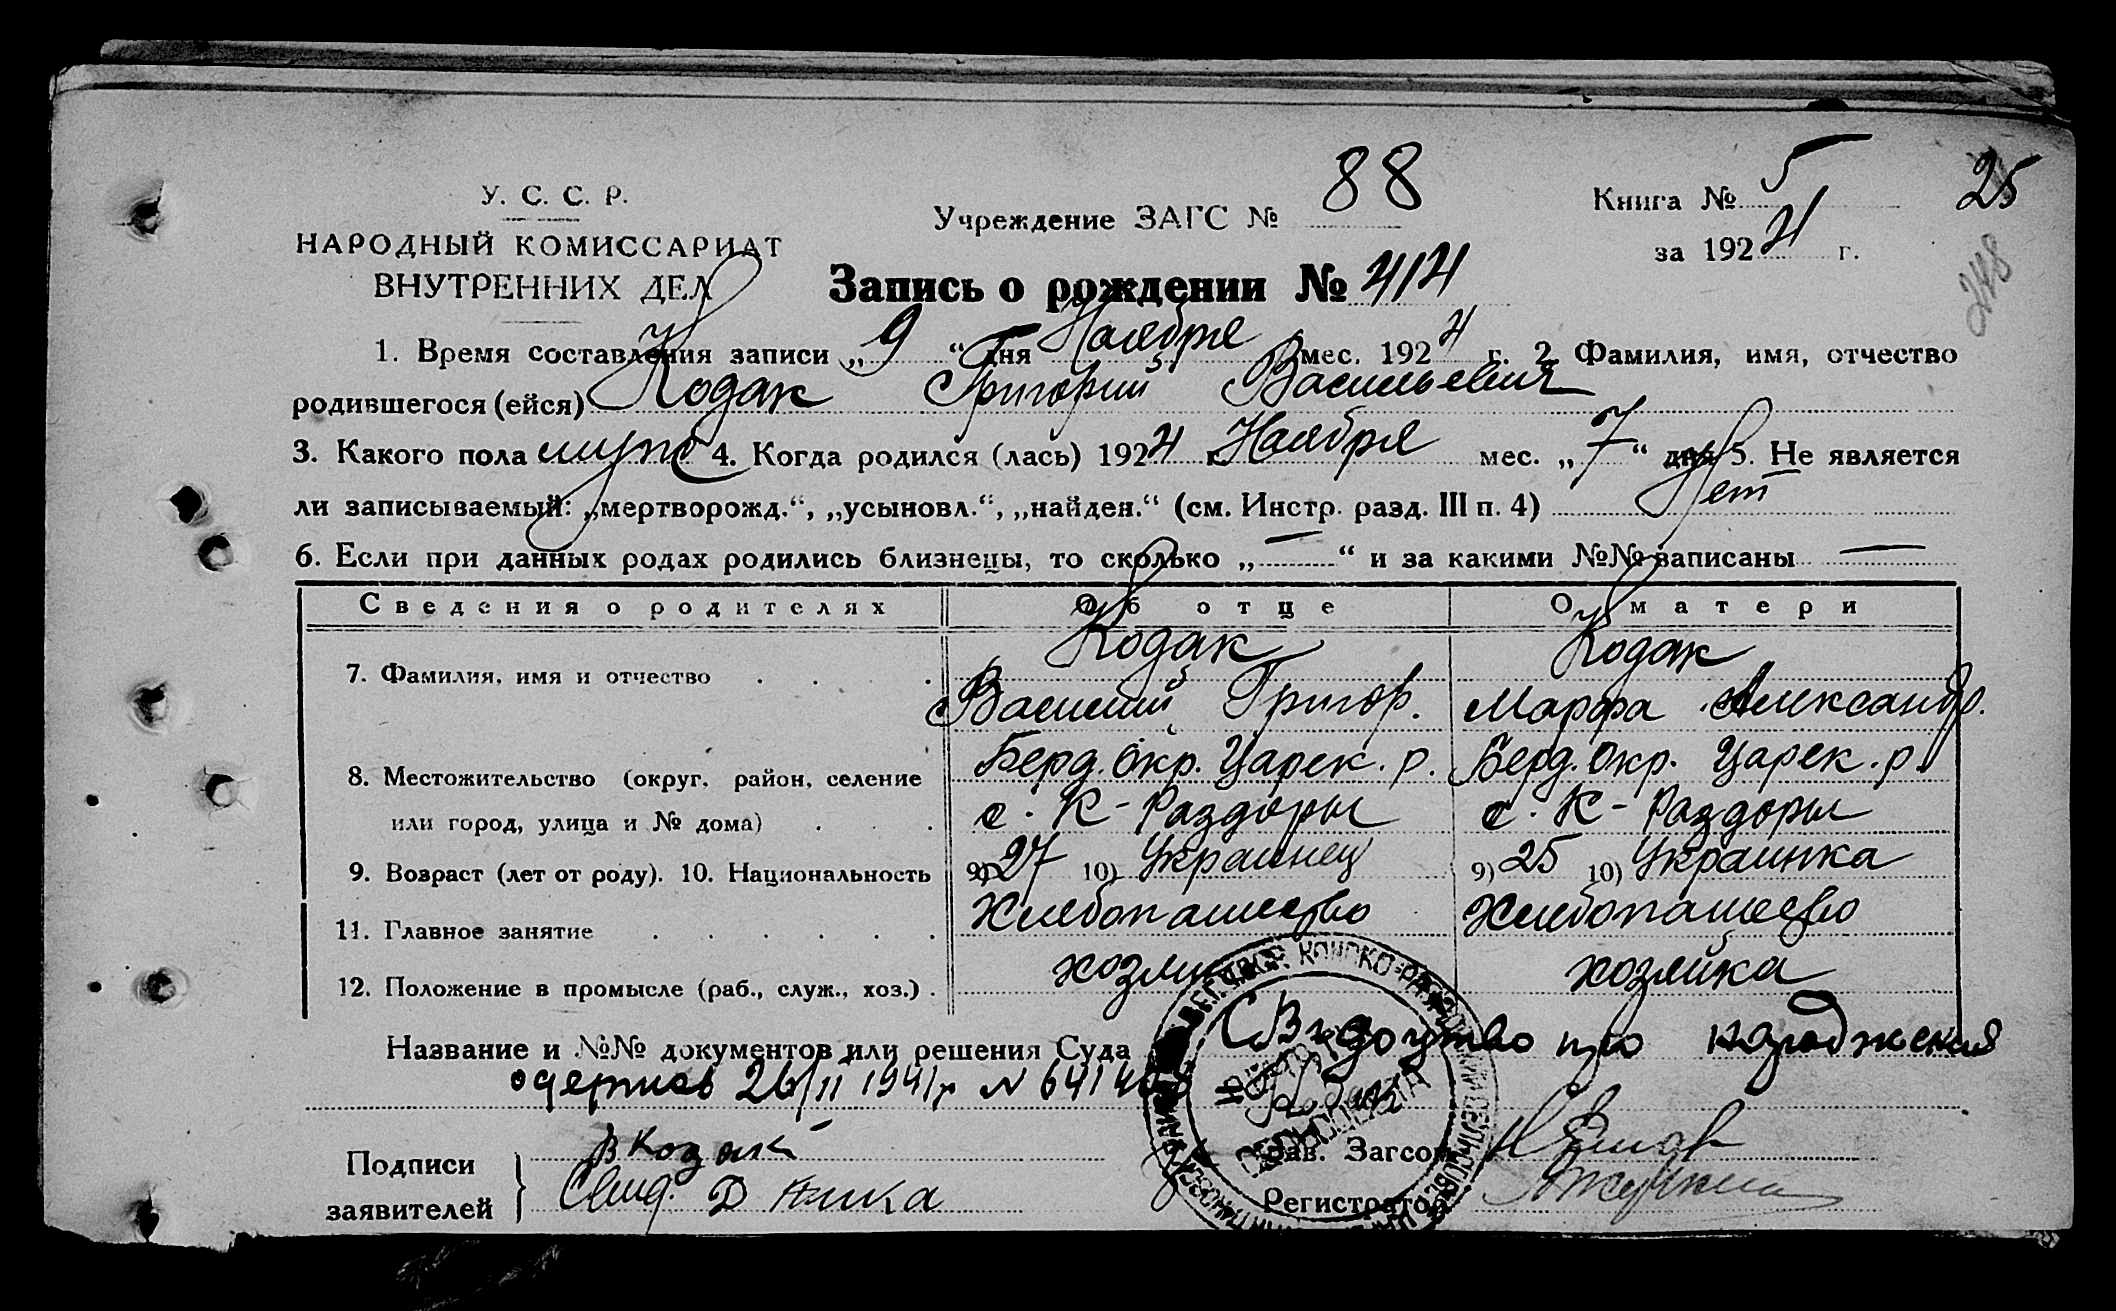 У. С. С. Р.
НАРОДНЫЙ КОМИССАРИАТ
ВНУТРЕННИХ ДЕЛ
Учреждение ЗАГС № 88
Книга № 5
25
за 1924 г.
248
Запись о рождении № 414
1. Время составления записи „9“ дня Ноября мес. 1924 г. 2. Фамилия, имя, отчество
родившегося (ейся) Кодак Григорий Васильевич
3. Какого пола муж 4. Когда родился (лась) 1924 г. Ноября мес. „7“ дня 5. Не является
ли записываемый: „мертворожд.“, „усыновл.“, „найден.“ (см. Инстр. разд. III п. 4) Нет
6. Если при данных родах родились близнецы, то сколько „—“ и за какими №№ записаны —
Сведения о родителях Об отце О матери
7. Фамилия, имя и отчество Кодак Кодак
Василий Григор. Марфа Александр.
8. Местожительство (округ, район, селение Берд. Окр. Царек. р. Берд. Окр. Царек. р.
или город, улица и № дома) с. К-Раздоры с. К-Раздоры
9. Возраст (лет от роду). 10. Национальность 9) 27 10) Украинец 9) 25 10) Украинка
11. Главное занятие Хлебопашество Хлебопашество
12. Положение в промысле (раб., служ., хоз.) хозяин хозяйка
Название и №№ документов или решения Суда Свидоцтво про народження
одержав 26/II 1941 р N
Подписи
заявителей
В Кодак
Свид.
Зав. Загсом
Регистратор